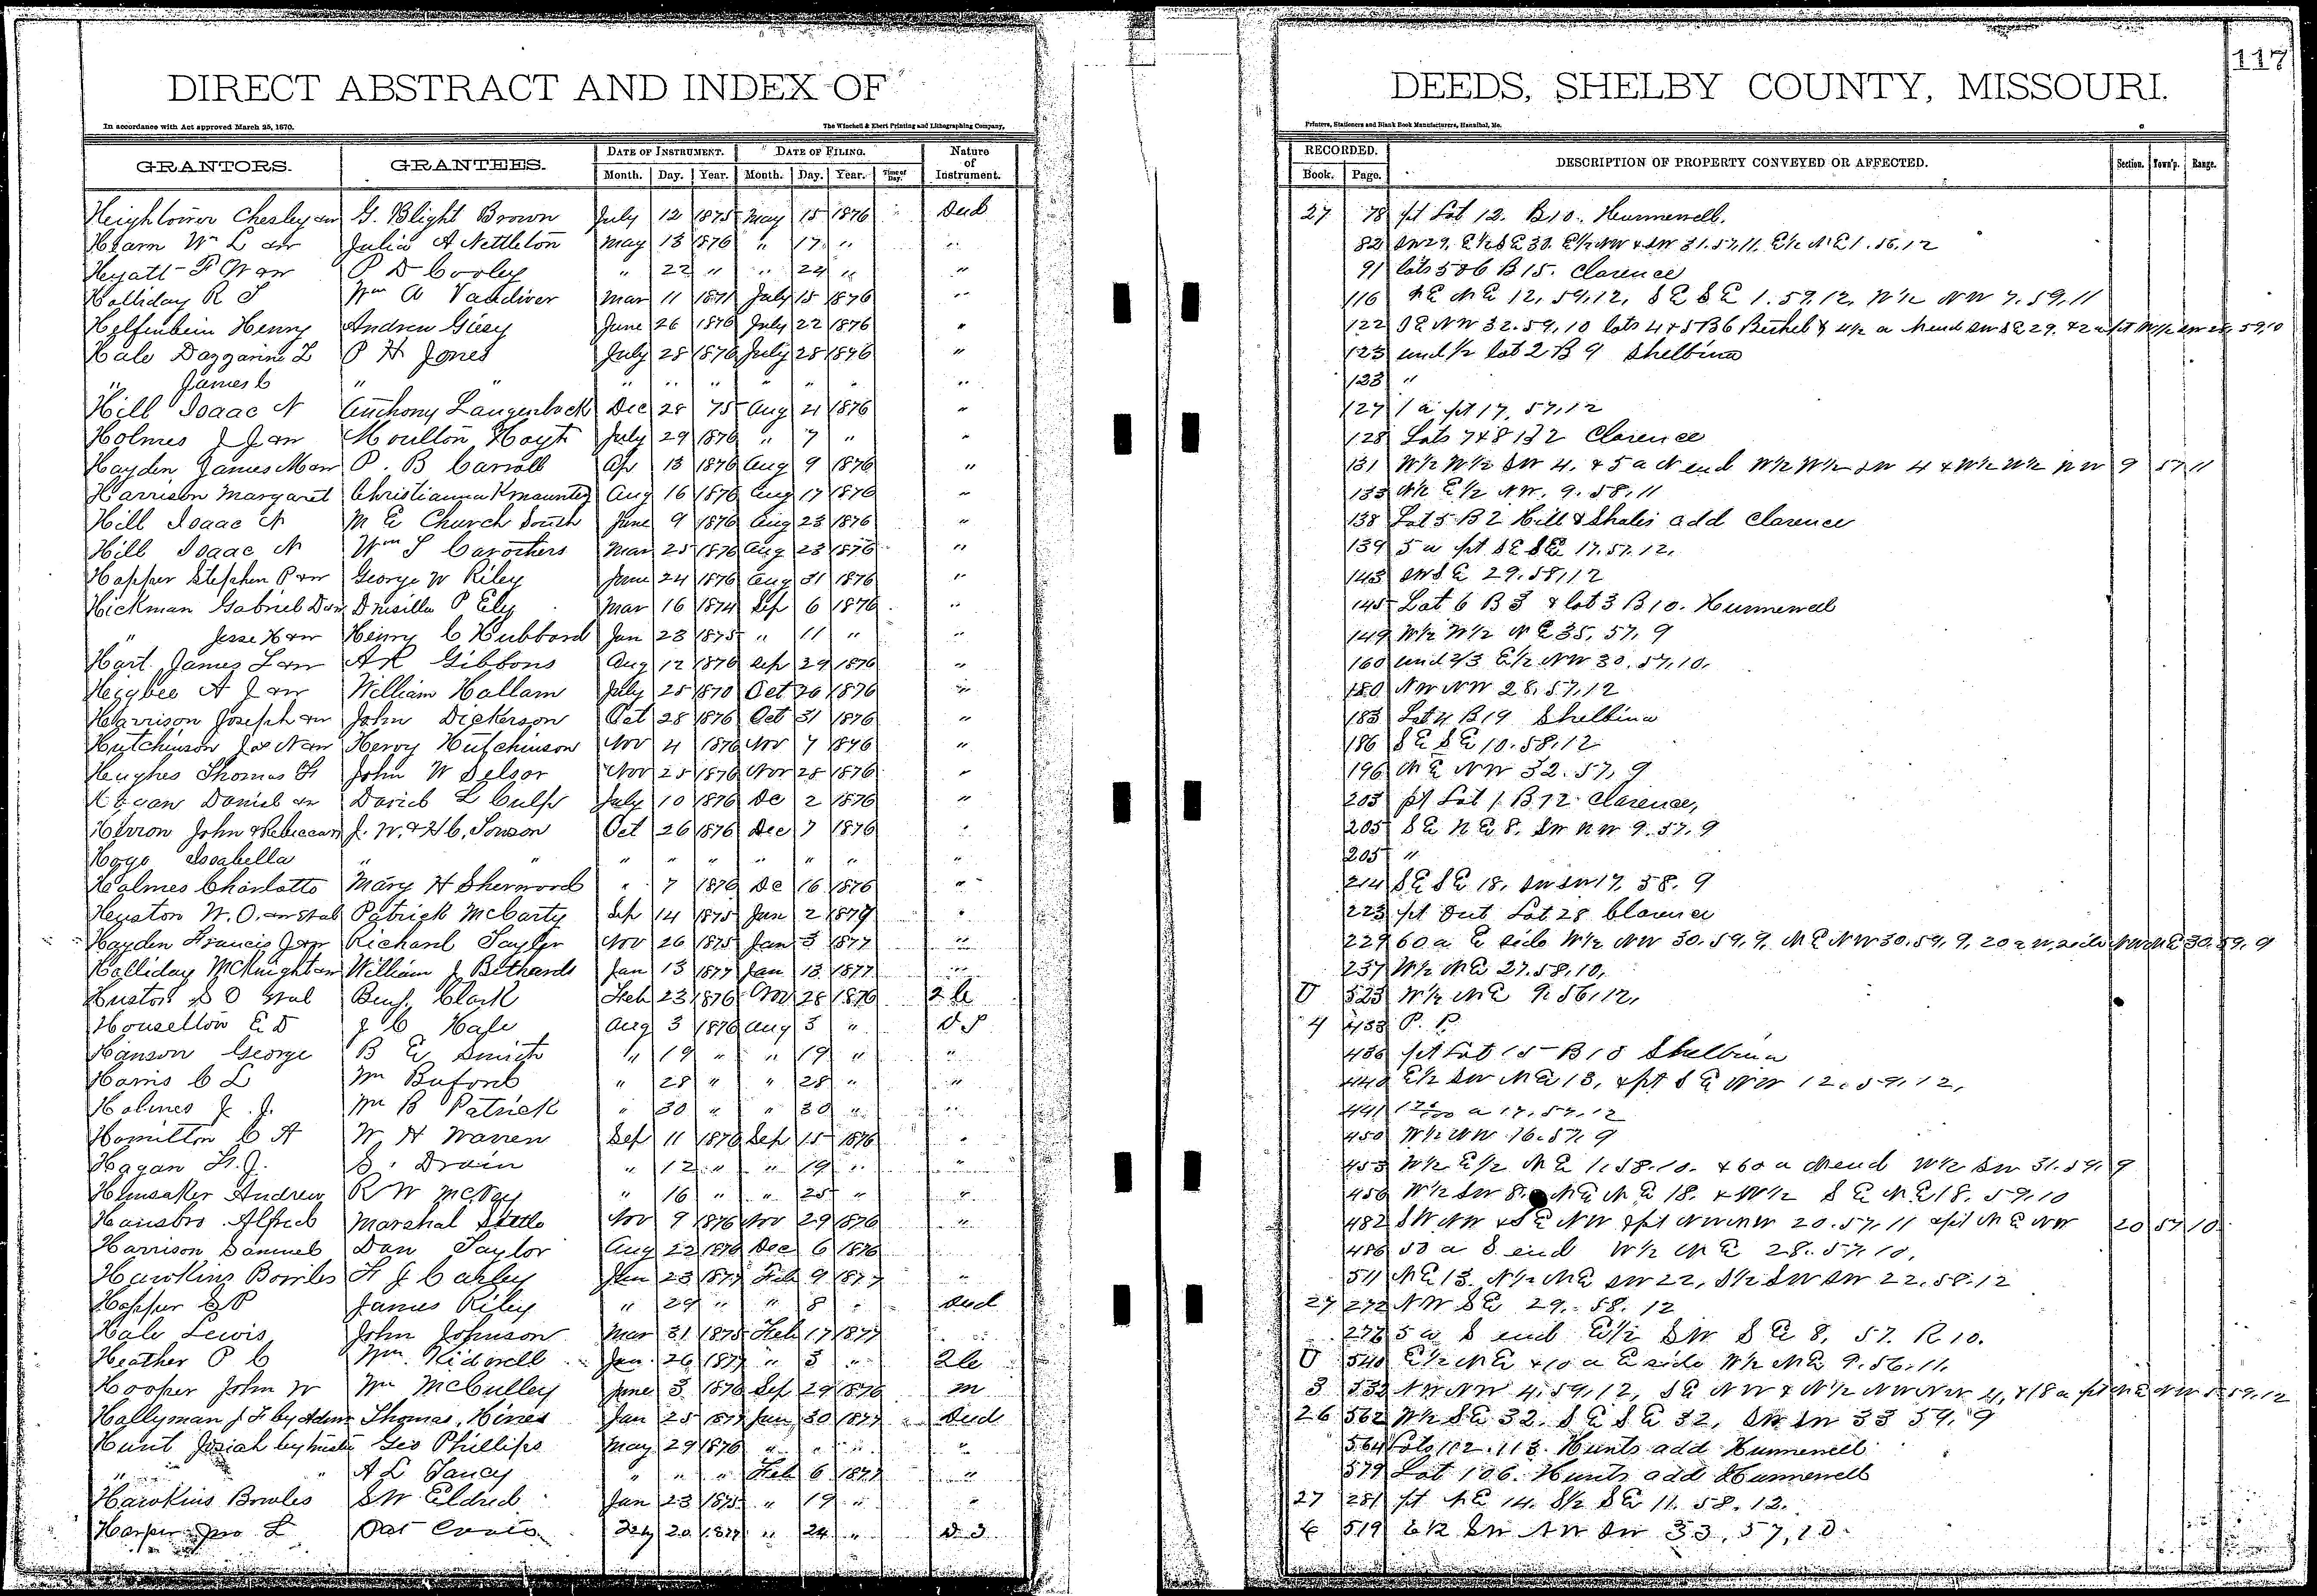 117
DIRECT ABSTRACT AND INDEX OF DEEDS, SHELBY COUNTY, MISSOURI.
In accordance with Act approved March 25, 1870. The Winchell & Ebert Printing and Lithographing Company, Printers, Stationers and Blank Book Manufacturers, Hannibal, Mo.
GRANTORS. GRANTEES. DATE OF INSTRUMENT. DATE OF FILING. Nature of Instrument. RECORDED. DESCRIPTION OF PROPERTY CONVEYED OR AFFECTED. Section. Town'p. Range.
Month. Day. Year. Month. Day. Year. Time of Day. Book. Page.
Heightower Chesley &w G. Blight Brown July 12 1875 May 15 1876 Deed 27 78 pt Lot 12. B10. Hunnewell.
Hearn Wm L &w Julia A Nettleton May 13 1876 " 17 " " 82 SW29, E½SE30. E½NW & SW 31.57.11, E½NE1.56.12
Hyatt F W &w P D Cooley " 22 " " 24 " " 91 lots 5&6 B15. Clarence
Holliday R S Wm A Vandiver Mar 11 1871 July 15 1876 " 116 NE NE 12, 59,12, SE SE 1.59.12, W½ NW 7.59,11
Helfenbein Henry Andrew Giesy June 26 1876 July 22 1876 " 122 SE NW 32.59,10 lots 4&5 B6 Bethel & 4½ a N end SW SE 29. &2 a pt W½ SW 28, 59,10
Hale Dazzarine L P H Jones July 28 1876 July 28 1876 " 123 und ½ lot 2 B 9 Shelbina
" James C " " " " " " " " " 123 "
Hill Isaac N Anthony Langenbeck Dec 28 75 Aug 21 1876 " 127 1 a pt 17, 57,12
Holmes J J &w Moulton Hoyt July 29 1876 " 7 " " 128 Lots 7&8 B2 Clarence
Hayden James M &w P. B Carroll Apr 13 1876 Aug 9 1876 " 131 W½ W½ SW 4. & 5 a N end W½ W½ SW 4 & W½ W½ NW 9 57 11
Harrison Margaret Christianna Kmauntz Aug 16 1876 Aug 17 1876 " 133 N½ E½ NW. 9.58,11
Hill Isaac N M E Church South June 9 1876 Aug 23 1876 " 138 Lot 5 B 2 Hill & Shales add Clarence
Hill Isaac N Wm S Carothers Mar 25 1876 Aug 23 1876 " 139 5 a pt SE SE 17.57.12.
Hopper Stephen P &w George W Riley June 24 1876 Aug 31 1876 " 143 SW SE 29.58,12
Hickman Gabriel D &w Drusilla P Ely Mar 16 1874 Sep 6 1876 " 145 Lot 6 B 3 & lot 3 B 10. Hunnewell
" Jesse H &w Henry C Hubbard Jan 23 1875 " 11 " " 149 W½ W½ NE 35, 57, 9
Hart James L &w A R Gibbons Aug 12 1876 Sep 29 1876 " 160 und 2/3 E½ NW 30.57,10,
Heigbee A J &w William Hallam July 25 1870 Oct 26 1876 " 180 NW NW 28,57,12
Harrison Joseph &w John Dickerson Oct 28 1876 Oct 31 1876 " 183 Lot 4 B19 Shelbina
Hutchinson Jas N &w Hervy Hutchinson Nov 4 1876 Nov 7 1876 " 186 SE SE 10.58,12
Hughes Thomas H John W Selsor Nov 25 1876 Nov 28 1876 " 196 NE NW 32.57, 9
Hagan Daniel &w David L Culp July 10 1876 De 2 1876 " 203 pt Lot 1 B 12 Clarence,
Herron John & Rebecca J. W. & H C. Towson Oct 26 1876 Dec 7 1876 " 205 SE NE 8. SW NW 9.57.9
Hoge Isabella " " " " " " " " " 205 "
Holmes Charlotte Mary H Sherwood " 7 1876 De 16 1876 " 214 SE SE 18, SW SW 17, 58, 9
Heuston W. O. &w et al Patrick McCarty Sep 14 1875 Jan 2 1877 " 223 pt Out Lot 28 Clarence
Hayden Francis J &w Richard Taylor Nov 26 1875 Jan 3 1877 " 229 60 a E side W½ NW 30.59,9, NE NW 30.59,9, 20 a W. side NW NE 30,59,9
Holliday McKnight &w William J Bethards Jan 13 1877 Jan 13 1877 " 237 W½ NE 27.58,10,
Huston S O et al Benj. Clark Feb 23 1876 Nov 28 1876 2 C U 523 W½ NE 9.56,12,
Houselton E D J C Hale Aug 3 1876 Aug 3 " D T 4 433 P. P.
Hanson George B E Smith " 19 " " 19 " " 436 pt Lot 15 B 18 Shelbina
Harris C L Wm Buford " 28 " " 28 " " 440 E½ SW NE 13, & pt SE NW 12.59,12,
Holmes J. J. Wm B Patrick " 30 " " 30 " " 441 a 17,57,12
Hamilton C A W. H Warren Sep 11 1876 Sep 15 1876 " 450 W½ NW 16.57,9
Hagan H. J. S. Drain " 12 " " 19 " " 453 W½ E½ NE 1.58,10. & 60 a N end W½ SW 31.59, 9
Hunsaker Andrew R W McVay " 16 " " 25 " " 456 W½ SW 8. NE NE 18. & W½ SE NE 18, 59,10
Hansbro Alfred Marshal Settle Nov 9 1876 Nov 29 1876 " 482 SW NW & SE NW & pt NW NW 20.57,11 & pt NE NW 20 57 10
Harrison Samuel Dan Taylor Aug 22 1876 Dec 6 1876 486 50 a S end W½ NE 28.57,10,
Hawkins Bowles H J Carley Jan 23 1877 Feb 9 1877 " 511 NE 13. N½ NE SW 22, S½ SW SW 22.58.12
Hopper S P James Riley " 29 " " 8 " Deed 27 272 NW SE 29. 58. 12
Hale Lewis John Johnson Mar 31 1875 Feb 17 1877 " 277 5 a S end E½ SW SE 8, 57. R 10.
Heather P C Wm. Kidwell Jan 26 1877 " 3 " 2C U 540 E½ NE & 10 a E side W½ NE 9.56.11.
Hooper John W Wm McCulley June 3 1876 Sep 29 1876 m 3 532 NW NW 4,59,12, SE NW & N½ NW NW 4, & 18 a pt NE NW 5 59,12
Hollyman J F by Admr Thomas Hines Jan 25 1877 Jan 30 1877 Deed 26 562 W½ SE 32. SE SE 32, SW SW 33 59, 9
Hunt Josiah by trustee Geo Phillips May 29 1876 " " " " 564 Lots 112.113. Hunts add Hunnewell
" " A L Yancy " " " Feb 6 1877 " 579 Lot 106. Hunts add Hunnewell
Hawkins Bowles S W Eldred Jan 23 1875 " 19 " " 27 281 pt NE 14. S½ SE 11. 58.12.
Harper Jno L Feby 20 1877 " 24 " D T 519 E½ SW NW SW 33, 57,10.